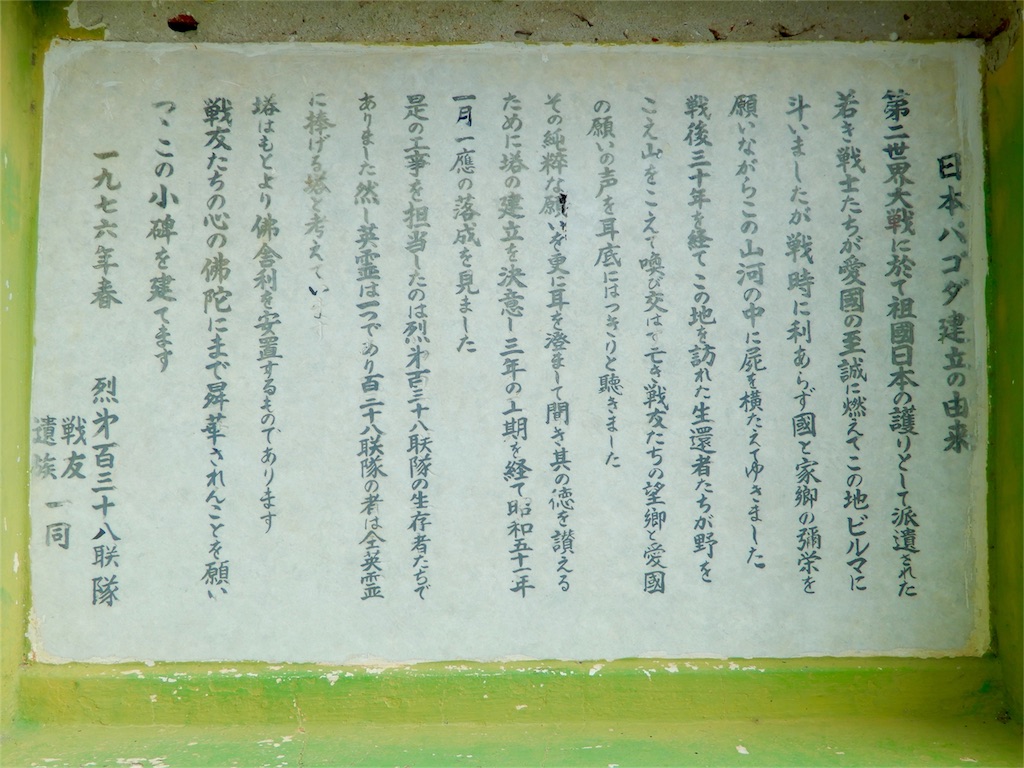 日本パゴダ建立の由来
第二世界大戦に於て祖國日本の護りとして派遣された
若き戦士たちが愛國の至誠に燃えてこの地ビルマに
斗いましたが戦時に利あらず國と家郷の彌栄を
願いながらこの山河の中に屍を横たえてゆきました
戦後三十年を経てこの地を訪れた生還者たちが野を
こえ山をこえて喚び交はす亡き戦友たちの望郷と愛國
の願いの声を耳底にはっきりと聴きました
その純粋な願いを更に耳を澄まして聞き其の徳を讃える
ために塔の建立を決意し三年の工期を経て昭和五十一年
一月一應の落成を見ました
是の工事を担当したのは烈㐧百三十八联隊の生存者たちで
ありました然し英霊は一つであり百二十八联隊の者は全英霊
に捧げる塔と考えてい
塔はもとより佛舎利を安置するものであります
戦友たちの心の佛陀にまで昇華されんことを願い
つゝこの小碑を建てます
一九七六年春
烈㐧百三十八联隊
戦友
遺族
一同